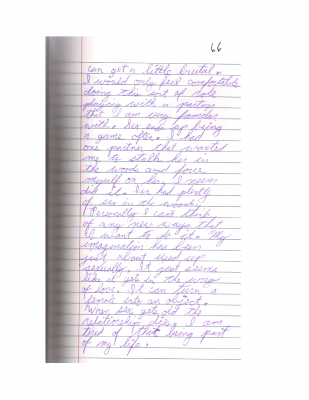 66
can get a little brutal.
I would only feel comfortable
doing this sort of role
playing with a partner
that I am very familiar
with. Sex ends up being
a game often. I had
one partner that wanted
me to stalk her in
the woods and force
myself on her. I never
did it. I've had plenty
of sex in the woods.
Personally I can't think
of any new ways that
I want to do it. My
imagination has been
just about used up
sexually. It just seems
like it gets in the way
of love. It can turn a
female into an object.
When sex gets old the
relationship dies. I am
tired of that being part
of my life.